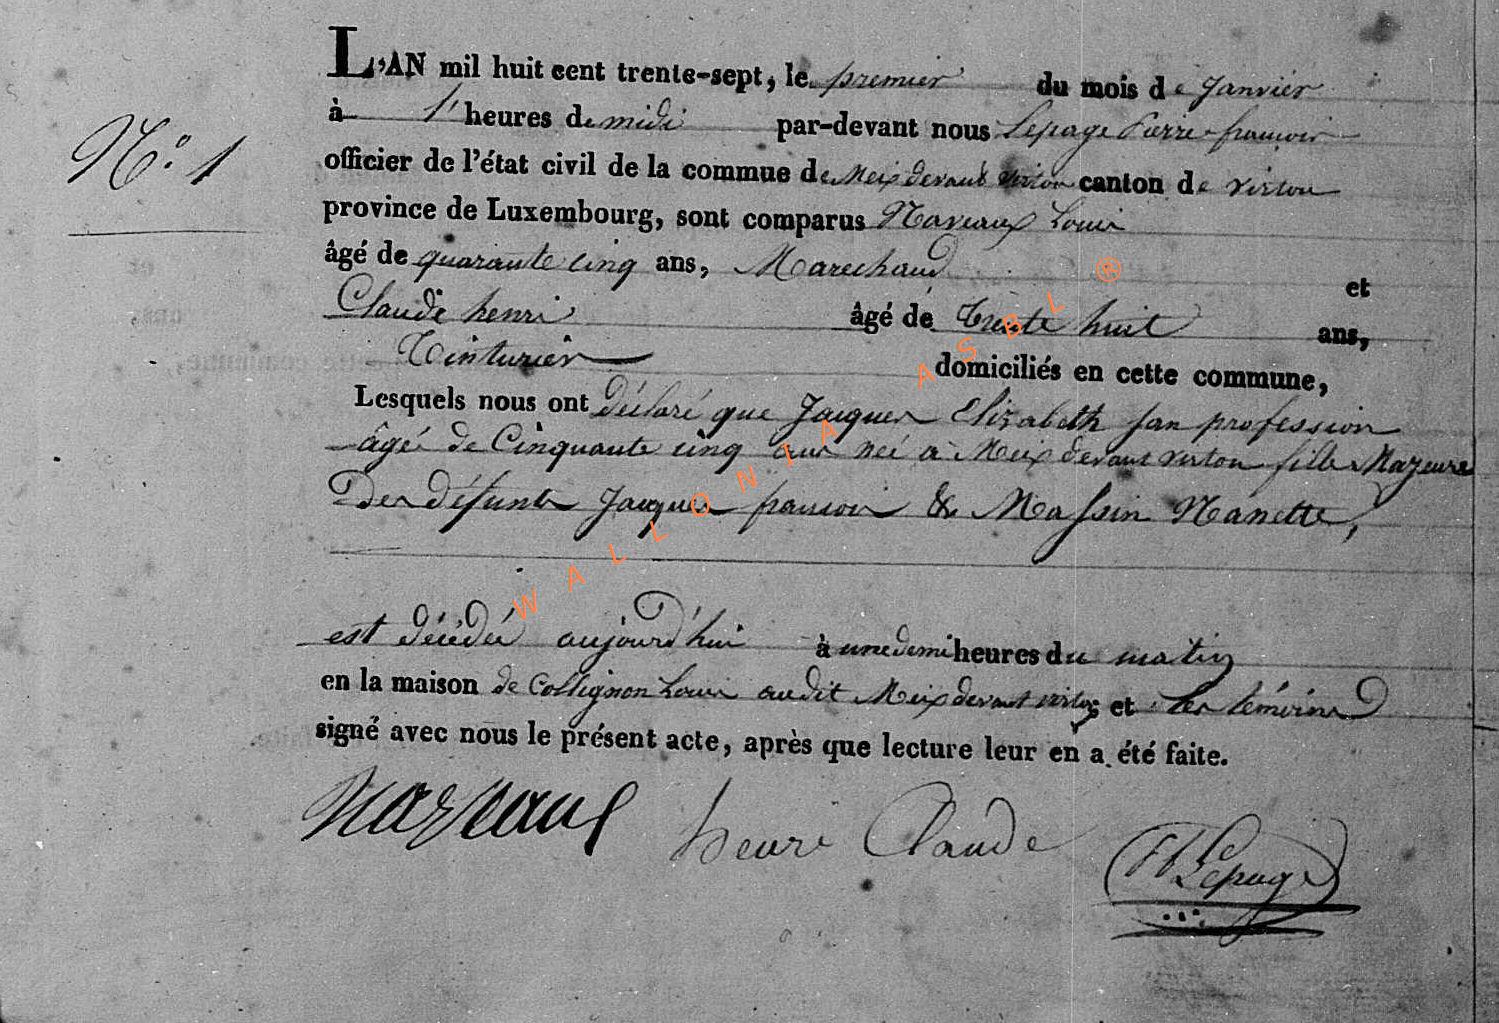 L'AN mil huit cent trente-sept, le premier du mois de Janvier
à 1' heures de midi par-devant nous Lepage Pierre-francois
N.° 1
officier de l'état civil de la commue de Meix devant virton canton de virton
province de Luxembourg, sont comparus Naveaux Louis
âgé de quarante cinq ans, Marechaud et
Claude henri âgé de Trente huit ans,
Teinturier domiciliés en cette commune,
Lesquels nous ont déclaré que Jacques Elizabeth san profession
âgé de Cinquante cinq ans neé à Meix devant virton fille Majeure
Des défunts Jacques francois & Massin Nanette,
est décédée aujourd'hui à une demi heures du matin
en la maison de Collignon Louis audit Meix devant virton; et les témoins
signé avec nous le présent acte, après que lecture leur en a été faite.
Naveaux henri Claude Lepage
WALLONIA ASBL ®